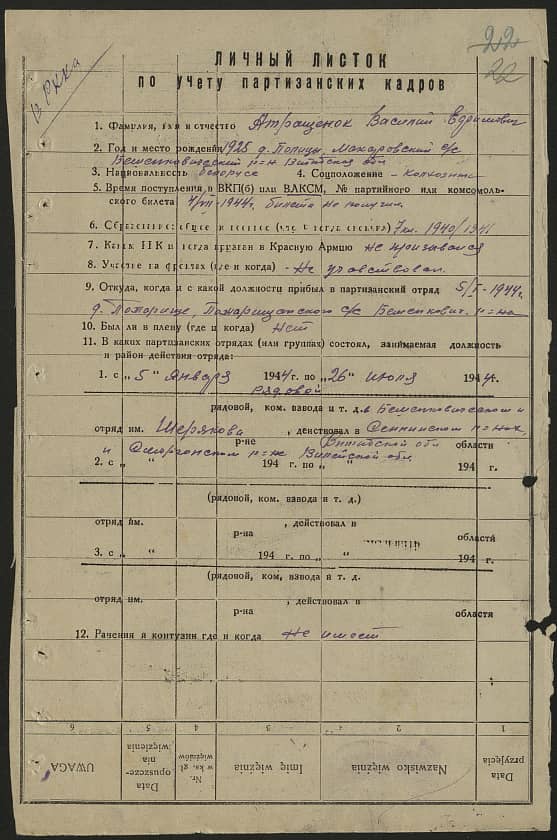 В РККА
22
22
ЛИЧНЫЙ ЛИСТОК
по учету партизанских кадров
1. Фамилия, имя и отчество Атращенок Василий
2. Год и место рождения 1925 д. Полицы, Макаровский с/с
Бешенковичский р-н Витебская обл
3. Национальность белорусс 4. Соцположение - колхозник
5. Время поступления в ВКП(б) или ВЛКСМ, № партийного или комсомоль-
ского билета 4/VII-1944г. билета не получил
6. Образование общее и военное (что и когда окончил) 7 кл. 1940/1941
7. Каким РВК и когда призван в Красную Армию не призывался
8. Участие на фронтах (где и когда) - Не участвовал.
9. Откуда, когда и с какой должности прибыл в партизанский отряд 5/I-1944г.
д. Поторище, с/с Бешенкович. р-на
10. Был ли в плену (где и когда) Нет
11. В каких партизанских отрядах (или группах) состоял, занимаемая должность
и район действия отряда:
1. с „ 5 “ Января 1944 г. по „ 26 “ июля 1944 г.
рядовой
рядовой, ком. взвода и т. д. в Бешенковичском и
отряд им. , действовал в Сеннинском р-нах,
р-не Витебской обл области
и Сморгонском р-не Вилейской обл.
2. с „ “ 194 г. по „ “ 194 г.
(рядовой, ком. взвода и т. д.)
отряд им. , действовал в
р-на области
3. с „ “ 194 г. по „ “ 194 г.
(рядовой, ком, взвода и т. д.
отряд им. , действовал в
р-на области
12. Ранения и контузии где и когда Не имеет
6 5 4 3 2 1
UWAGA
Data opuszcze- nia więzienia
Nr. w ks. gł. więźniów
Imię więźnia
Nazwisko więźnia
Data przyjęcia